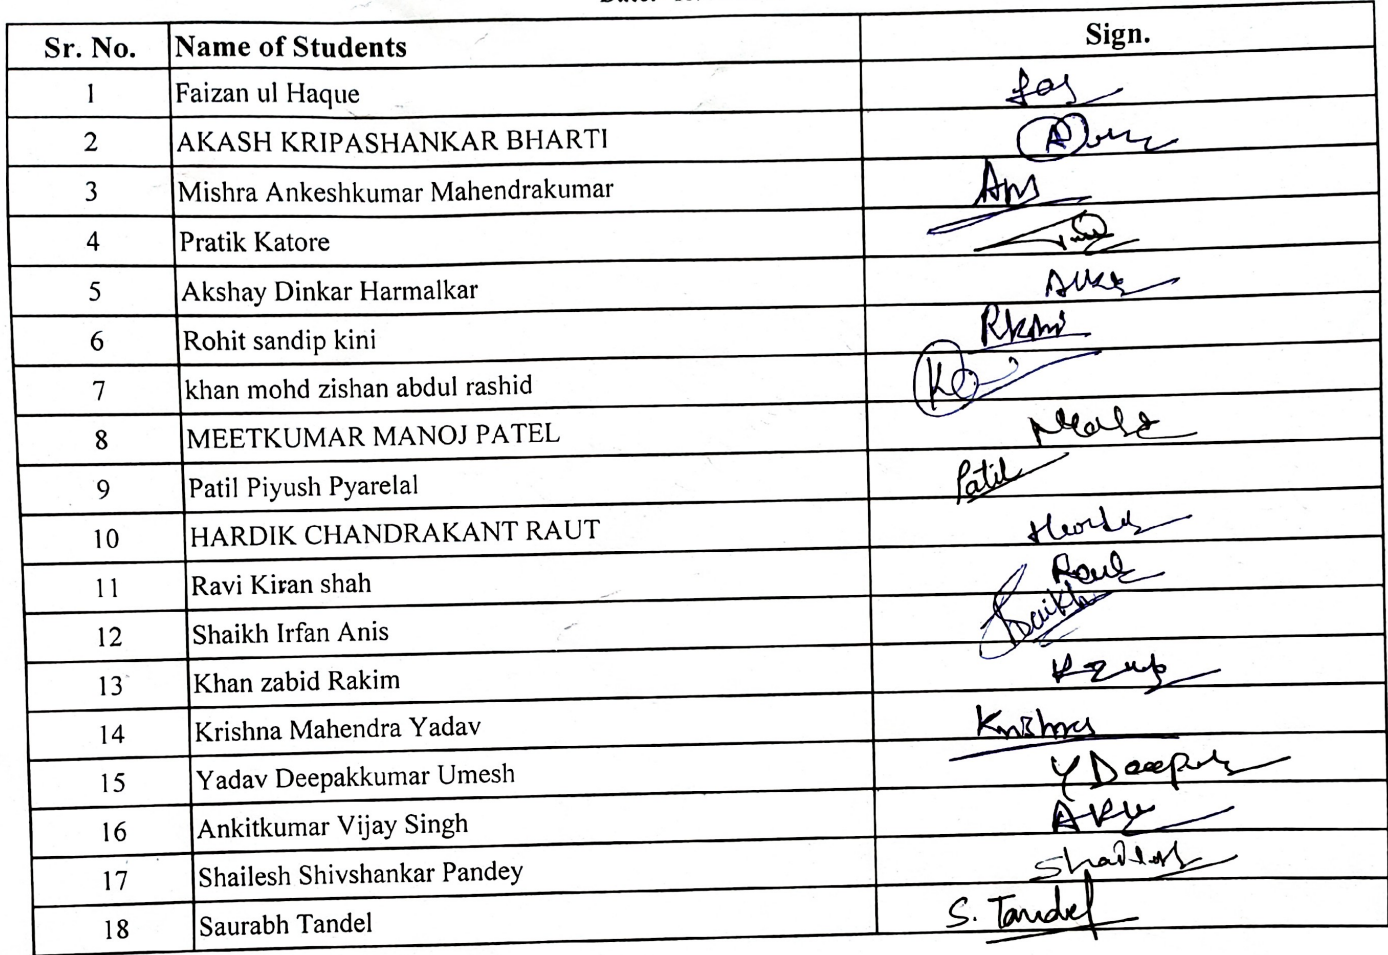 Sr. No. Name of Students Sign.
1 Faizan ul Haque
2 AKASH KRIPASHANKAR BHARTI
3 Mishra Ankeshkumar Mahendrakumar
4 Pratik Katore
5 Akshay Dinkar Harmalkar
6 Rohit sandip kini Rkini
7 khan mohd zishan abdul rashid
8 MEETKUMAR MANOJ PATEL
9 Patil Piyush Pyarelal Patil
10 HARDIK CHANDRAKANT RAUT
11 Ravi Kiran shah
12 Shaikh Irfan Anis Shaikh
13 Khan zabid Rakim
14 Krishna Mahendra Yadav Krishna
15 Yadav Deepakkumar Umesh Y Deepak
16 Ankitkumar Vijay Singh
17 Shailesh Shivshankar Pandey Shailesh
18 Saurabh Tandel S. Tandel